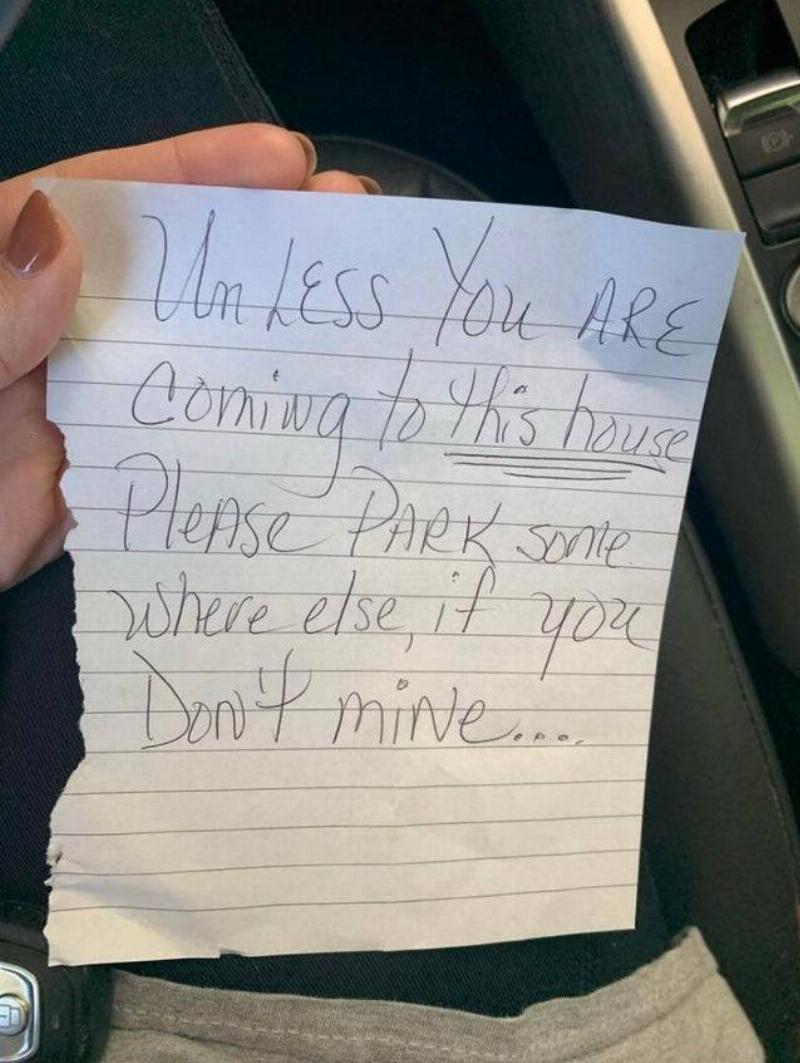 UnLESS YOU ARE
Coming to this house
PleASe PARK some
where else, if you
Don't miNe....